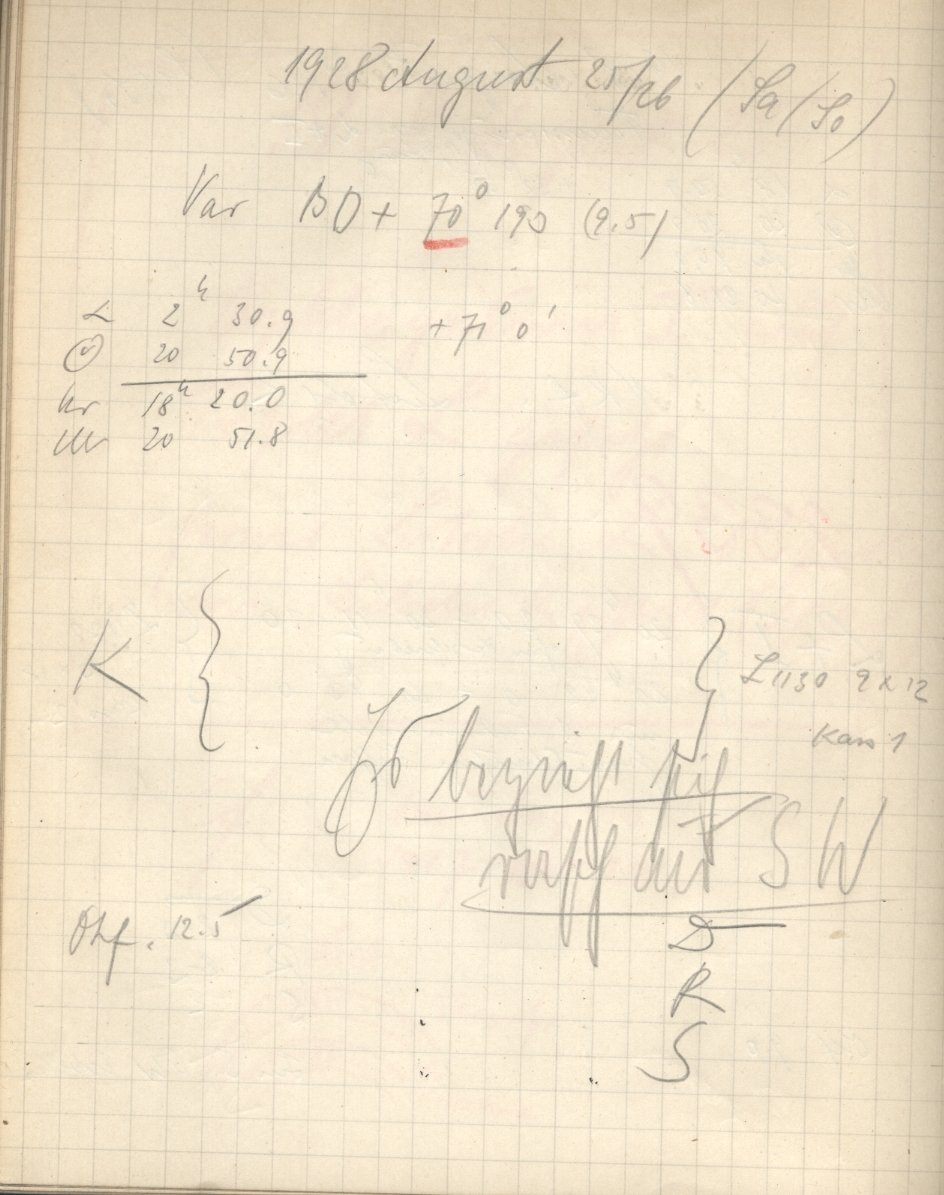 1928 August 25/26 (Sa/So)
Var BD + 70° 190 (9.5)
α 2ʰ 30.9 + 71° 0'
☉ 20 50.9
hr 18ʰ 20.0
Uhr 20 51.8
K { } L 1130 9x12
Kass 1
Es bezieht sich
rasch aus SW
Okf. 12.5
D
R
S